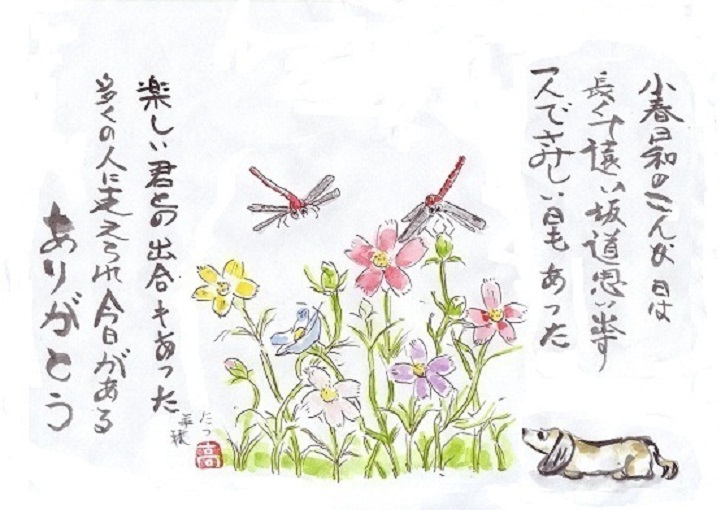 小春日和のこんな日は
長く遠い坂道思い出す
一人でさみしい日もあった
楽しい君との出合もあった
多くの人に支えられ今日がある
ありがとう
たつ
高